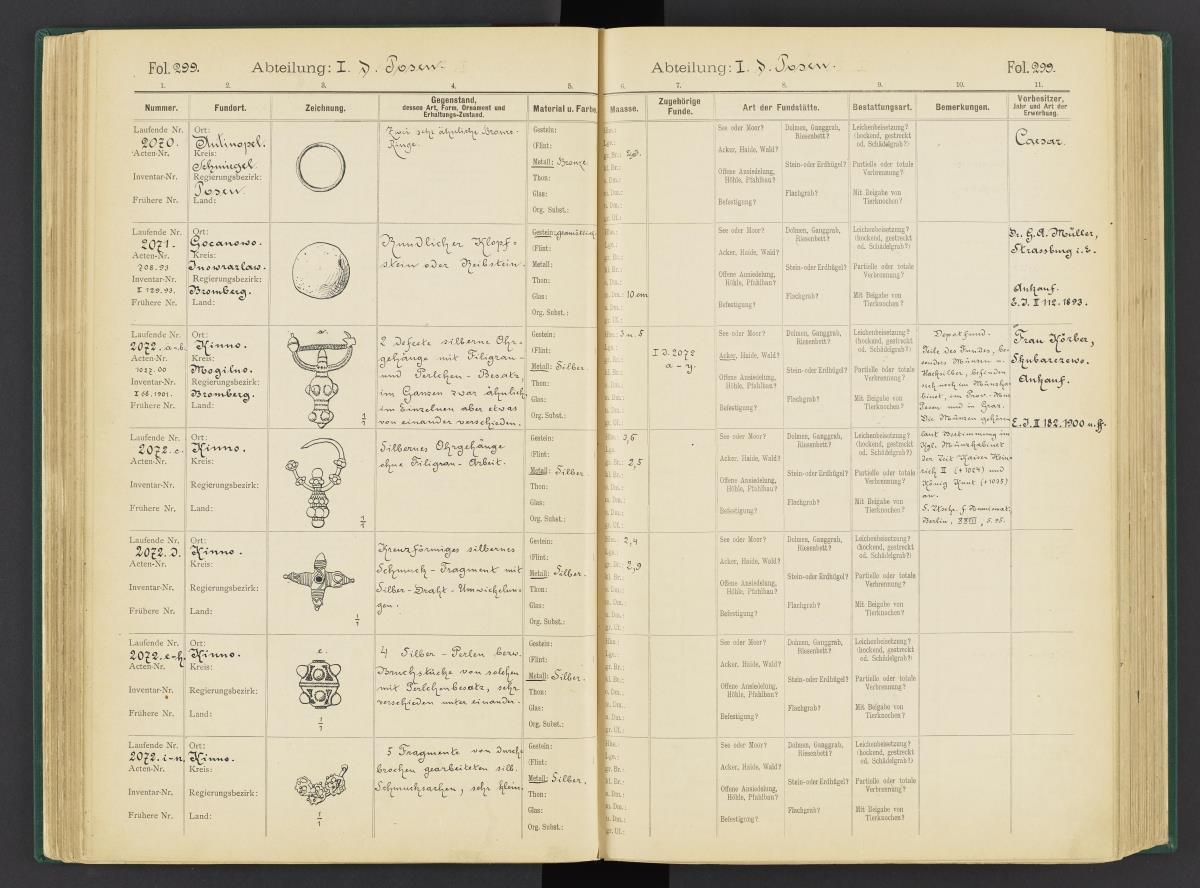 Fol. 299. Abteilung: I. d. Posen.
1. 2. 3. 4. 5.
Nummer. Fundort. Zeichnung. Gegenstand, dessen Art, Form, Ornament und Erhaltungs-Zustand. Material u. Farbe.
Laufende Nr.
2070.
Acten-Nr.
Inventar-Nr.
Frühere Nr.
Ort:
Kreis:
Schmiegel.
Regierungsbezirk:
Posen
Land:
Zwei sehr ähnliche Bronze-
Ringe.
Gestein:
(Flint:
Metall: Bronze
Thon:
Glas:
Org. Subst.:
Laufende Nr.
2071.
Acten-Nr.
708.93
Inventar-Nr.
I 129.93.
Frühere Nr.
Ort:
Gocanowo.
Kreis:
Inowrazlaw.
Regierungsbezirk:
Bromberg.
Land:
Rundlicher Klopf-
stein oder Reibstein.
Gestein:
(Flint:
Metall:
Thon:
Glas:
Org. Subst.:
Laufende Nr.
2072. a-b.
Acten-Nr.
1027.00
Inventar-Nr.
I 68.1901.
Frühere Nr.
Ort:
Kinno.
Kreis:
Mogilno.
Regierungsbezirk:
Bromberg.
Land:
a.
1/1
2 defecte silberne Ohr-
gehänge mit Filigran-
und Perlchen-Besatz,
im Ganzen zwar ähnlich,
im Einzelnen aber etwas
von einander verschieden.
Gestein:
(Flint:
Metall: Silber
Thon:
Glas:
Org. Subst.:
Laufende Nr.
2072. c.
Acten-Nr.
Inventar-Nr.
Frühere Nr.
Ort:
Kinno.
Kreis:
Regierungsbezirk:
Land:
1/1
Silbernes Ohrgehänge
ohne Filigran-Arbeit.
Gestein:
(Flint:
Metall: Silber
Thon:
Glas:
Org. Subst.:
Laufende Nr.
2072. d.
Acten-Nr.
Inventar-Nr.
Frühere Nr.
Ort:
Kinno.
Kreis:
Regierungsbezirk:
Land:
1/1
Kreuzförmiges silbernes
Schmuck-Fragment mit
Silber-Draht-Umwickelun-
gen.
Gestein:
(Flint:
Metall: Silber.
Thon:
Glas:
Org. Subst.:
Laufende Nr.
2072. e-h.
Acten-Nr.
Inventar-Nr.
Frühere Nr.
Ort:
Kinno.
Kreis:
Regierungsbezirk:
Land:
e.
1/1
4 Silber-Perlen bezw.
Bruchstücke von solchen
mit Perlchenbesatz, sehr
verschieden unter einander.
Gestein:
(Flint:
Metall: Silber.
Thon:
Glas:
Org. Subst.:
Laufende Nr.
2072. i-n.
Acten-Nr.
Inventar-Nr.
Frühere Nr.
Ort:
Kinno.
Kreis:
Regierungsbezirk:
Land:
1/1
5 Fragmente von durch-
brochen gearbeiteten silb.
Schmucksachen, sehr klein.
Gestein:
(Flint:
Metall: Silber.
Thon:
Glas:
Org. Subst.:
Abteilung: I. d. Posen. Fol. 299.
6. 7. 8. 9. 10. 11.
Maasse. Zugehörige Funde. Art der Fundstätte. Bestattungsart. Bemerkungen. Vorbesitzer, Jahr und Art der Erwerbung.
See oder Moor?
Acker, Haide, Wald?
Offene Ansiedelung, Höhle, Pfahlbau?
Befestigung?
Dolmen, Ganggrab, Riesenbett?
Stein- oder Erdhügel?
Flachgrab?
Leichenbeisetzung? (hockend, gestreckt od. Schädelgrab?)
Partielle oder totale Verbrennung?
Mit Beigabe von Tierknochen?
Caesar.
10 cm
See oder Moor?
Acker, Haide, Wald?
Offene Ansiedelung, Höhle, Pfahlbau?
Befestigung?
Dolmen, Ganggrab, Riesenbett?
Stein- oder Erdhügel?
Flachgrab?
Leichenbeisetzung? (hockend, gestreckt od. Schädelgrab?)
Partielle oder totale Verbrennung?
Mit Beigabe von Tierknochen?
Dr. G. A. Müller,
Strassburg i. E.
Ankauf.
E. J. II 112. 1893.
3 u. 5
I d. 2072
a - y.
See oder Moor?
Acker, Haide, Wald?
Offene Ansiedelung, Höhle, Pfahlbau?
Befestigung?
Dolmen, Ganggrab, Riesenbett?
Stein- oder Erdhügel?
Flachgrab?
Leichenbeisetzung? (hockend, gestreckt od. Schädelgrab?)
Partielle oder totale Verbrennung?
Mit Beigabe von Tierknochen?
Depotfund.
Teile des Fundes, be-
sonders Münzen u.
Hacksilber, befinden
sich noch im Münzka-
binet, im Prov.-Mus.
Posen und in Graz.
Die Münzen gehören
Frau Körber,
Skubarczewo.
Ankauf.
E. J. II 182. 1900 u. ff.
3,6
2,5
See oder Moor?
Acker, Haide, Wald?
Offene Ansiedelung, Höhle, Pfahlbau?
Befestigung?
Dolmen, Ganggrab, Riesenbett?
Stein- oder Erdhügel?
Flachgrab?
Leichenbeisetzung? (hockend, gestreckt od. Schädelgrab?)
Partielle oder totale Verbrennung?
Mit Beigabe von Tierknochen?
laut Bestimmung im
Kgl. Münzkabinet
der Zeit Kaiser Hein-
rich II (+1024) und
König Knut (+1035)
an.
S. Ztschr. f. Numismat.
Berlin, XXIII, S. 95.
2,4
2,9
See oder Moor?
Acker, Haide, Wald?
Offene Ansiedelung, Höhle, Pfahlbau?
Befestigung?
Dolmen, Ganggrab, Riesenbett?
Stein- oder Erdhügel?
Flachgrab?
Leichenbeisetzung? (hockend, gestreckt od. Schädelgrab?)
Partielle oder totale Verbrennung?
Mit Beigabe von Tierknochen?
See oder Moor?
Acker, Haide, Wald?
Offene Ansiedelung, Höhle, Pfahlbau?
Befestigung?
Dolmen, Ganggrab, Riesenbett?
Stein- oder Erdhügel?
Flachgrab?
Leichenbeisetzung? (hockend, gestreckt od. Schädelgrab?)
Partielle oder totale Verbrennung?
Mit Beigabe von Tierknochen?
See oder Moor?
Acker, Haide, Wald?
Offene Ansiedelung, Höhle, Pfahlbau?
Befestigung?
Dolmen, Ganggrab, Riesenbett?
Stein- oder Erdhügel?
Flachgrab?
Leichenbeisetzung? (hockend, gestreckt od. Schädelgrab?)
Partielle oder totale Verbrennung?
Mit Beigabe von Tierknochen?